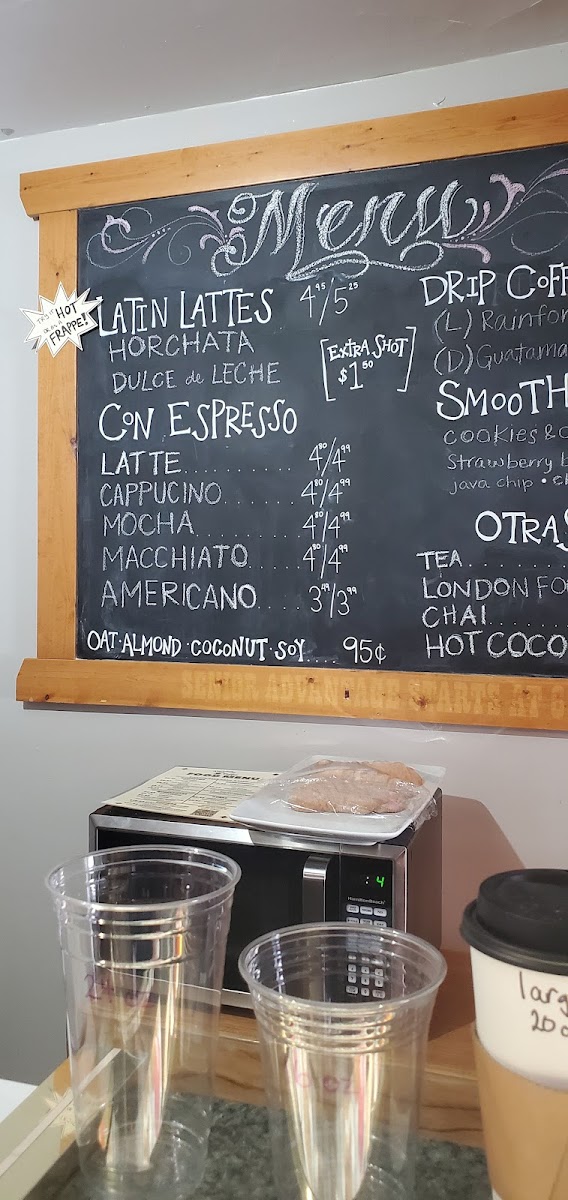 Menu
LATIN LATTES 4.95/5.25
HORCHATA
DULCE de LECHE
[EXTRA SHOT
$1.50]
HOT
FRAPPE!
CON ESPRESSO
LATTE.......... 4.80/4.99
CAPPUCINO....... 4.80/4.99
MOCHA.......... 4.80/4.99
MACCHIATO..... 4.80/4.99
AMERICANO..... 3.99/3.99
OAT·ALMOND·COCONUT·SOY.... 95¢
DRIP COFF
(L) Rainfor
(D) Guatama
SMOOTH
COOKIES & C
Strawberry b
java chip • c
OTRAS
TEA
LONDON FO
CHAI
HOT COCO
SENIOR ADVANTAGE STARTS AT 6
FOOD MENU
:4
HamiltonBeach
24 oz
16 oz
larg
20 o